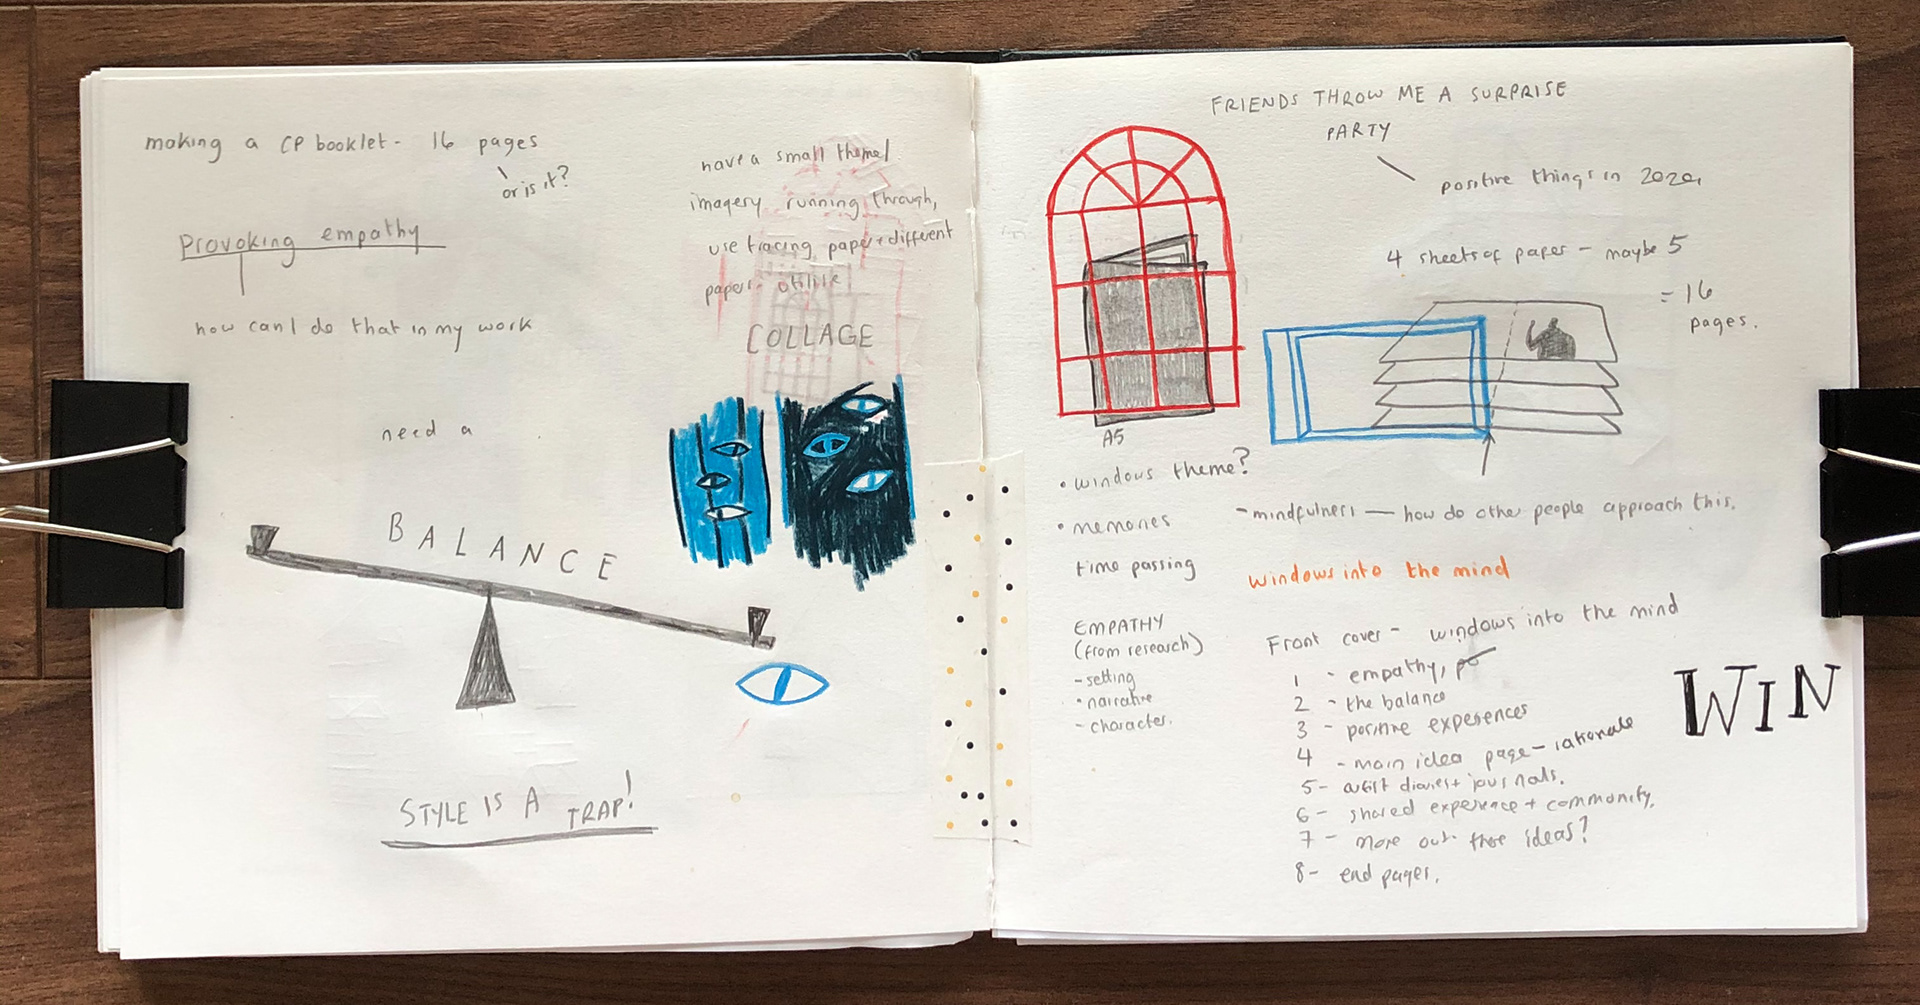 making a CP booklet - 16 pages
or is it?
Provoking empathy
how can I do that in my work
have a small theme/
imagery running through,
use tracing paper + different
papers
COLLAGE
need a
BALANCE
STYLE IS A TRAP!
FRIENDS THROW ME A SURPRISE
PARTY
positive things in 2020,
4 sheets of paper - maybe 5
= 16
pages.
A5
• windows theme?
• memories
time passing
EMPATHY
(from research)
- setting
• narrative
- character.
- mindfulness — how do other people approach this.
windows into the mind
Front cover - windows into the mind
1 - empathy,
2 - the balance
3 - positive experiences
4 - main idea page - rationale
5 - artist diaries + journals.
6 - shared experience + community.
7 - more out there ideas?
8 - end pages.
WIN